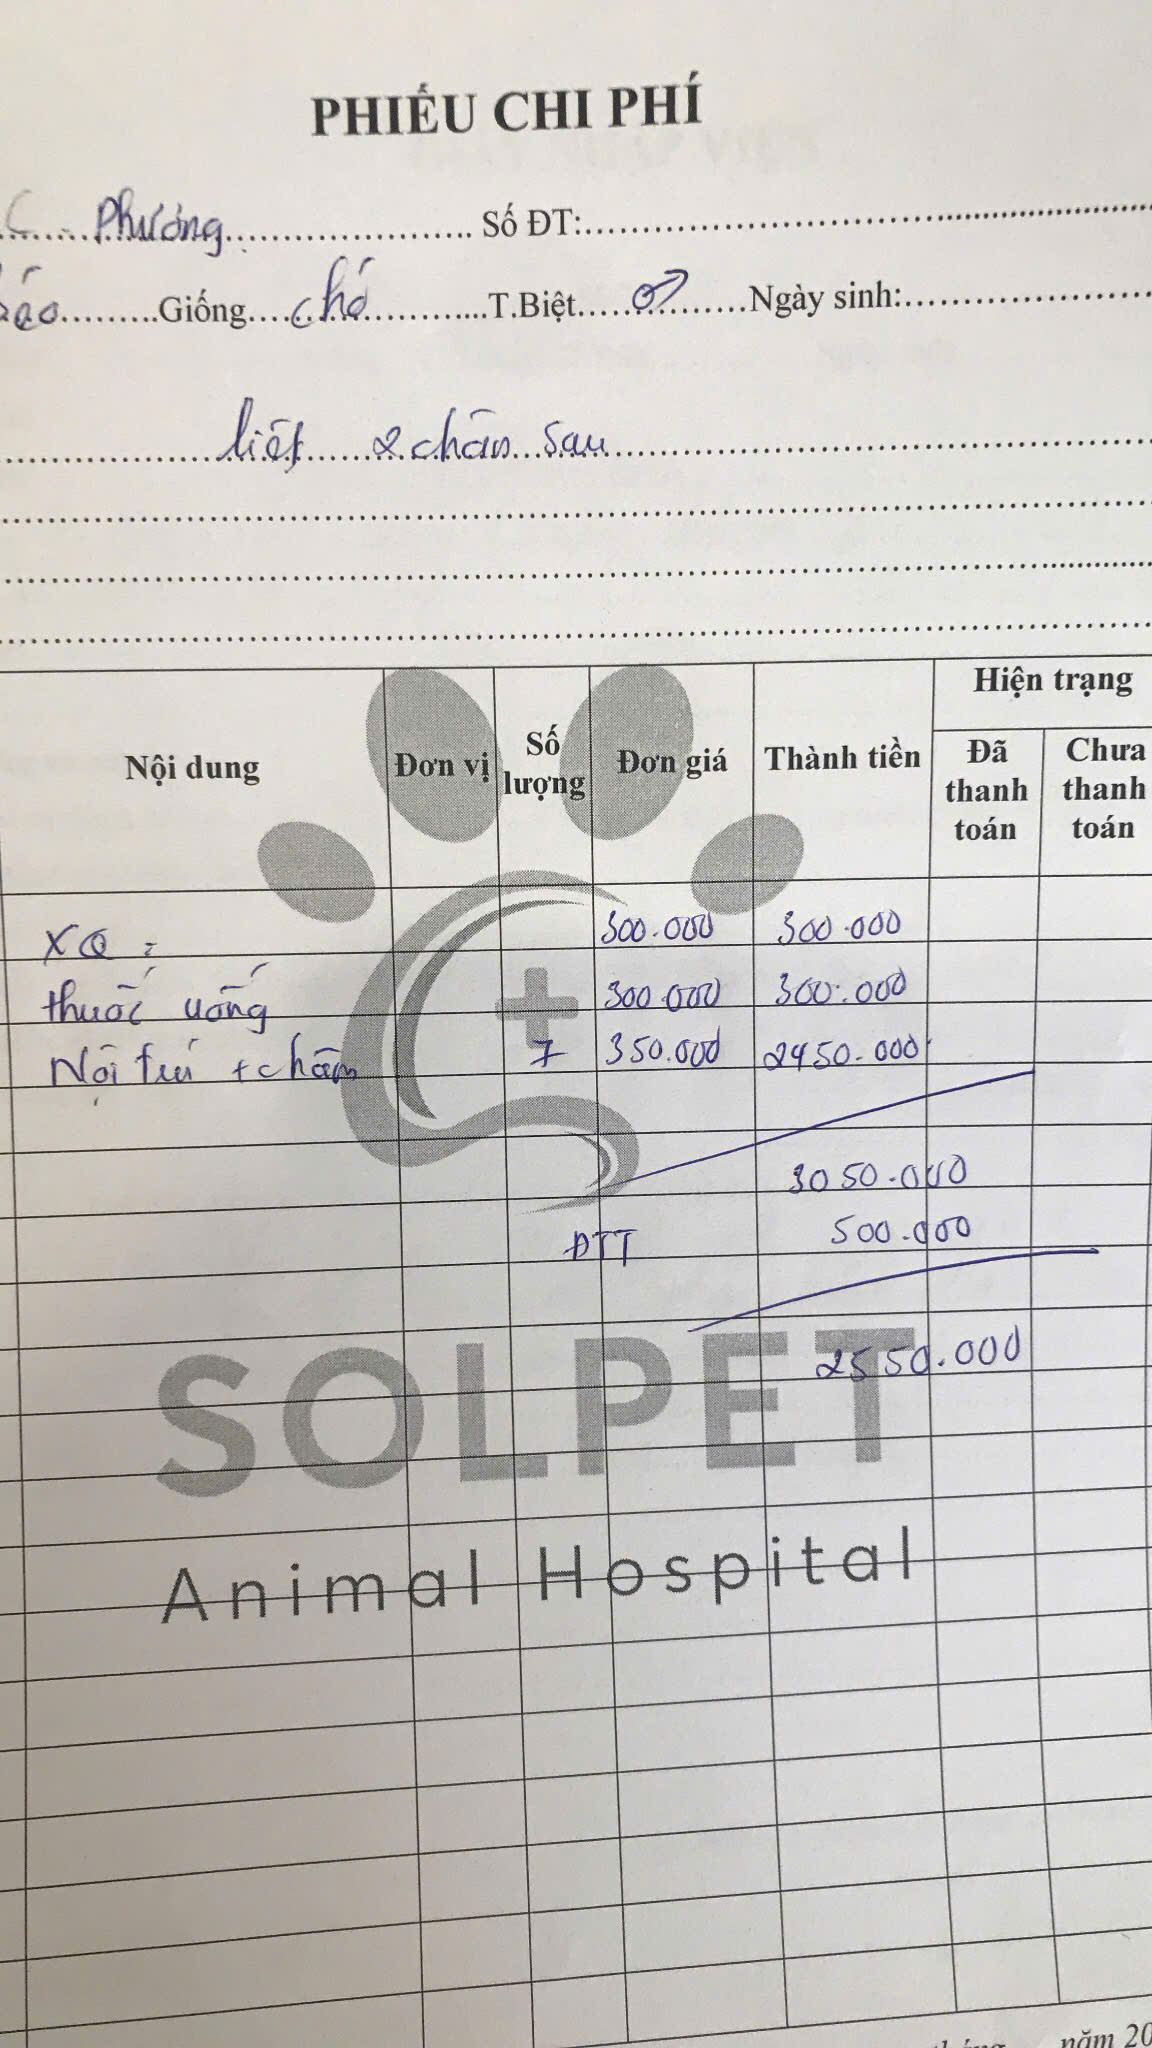 PHIẾU CHI PHÍ
C. Phương Số ĐT:
Giống chó T.Biệt ♂ Ngày sinh:
liệt 2 chân sau
Nội dung Đơn vị Số lượng Đơn giá Thành tiền Hiện trạng
Đã thanh toán Chưa thanh toán
XQ: 300.000 300.000
thuốc uống 300.000 300.000
Nội trú + châm 7 350.000 2450.000
3050.000
ĐTT 500.000
2550.000
SOLPET
Animal Hospital
tháng năm 20